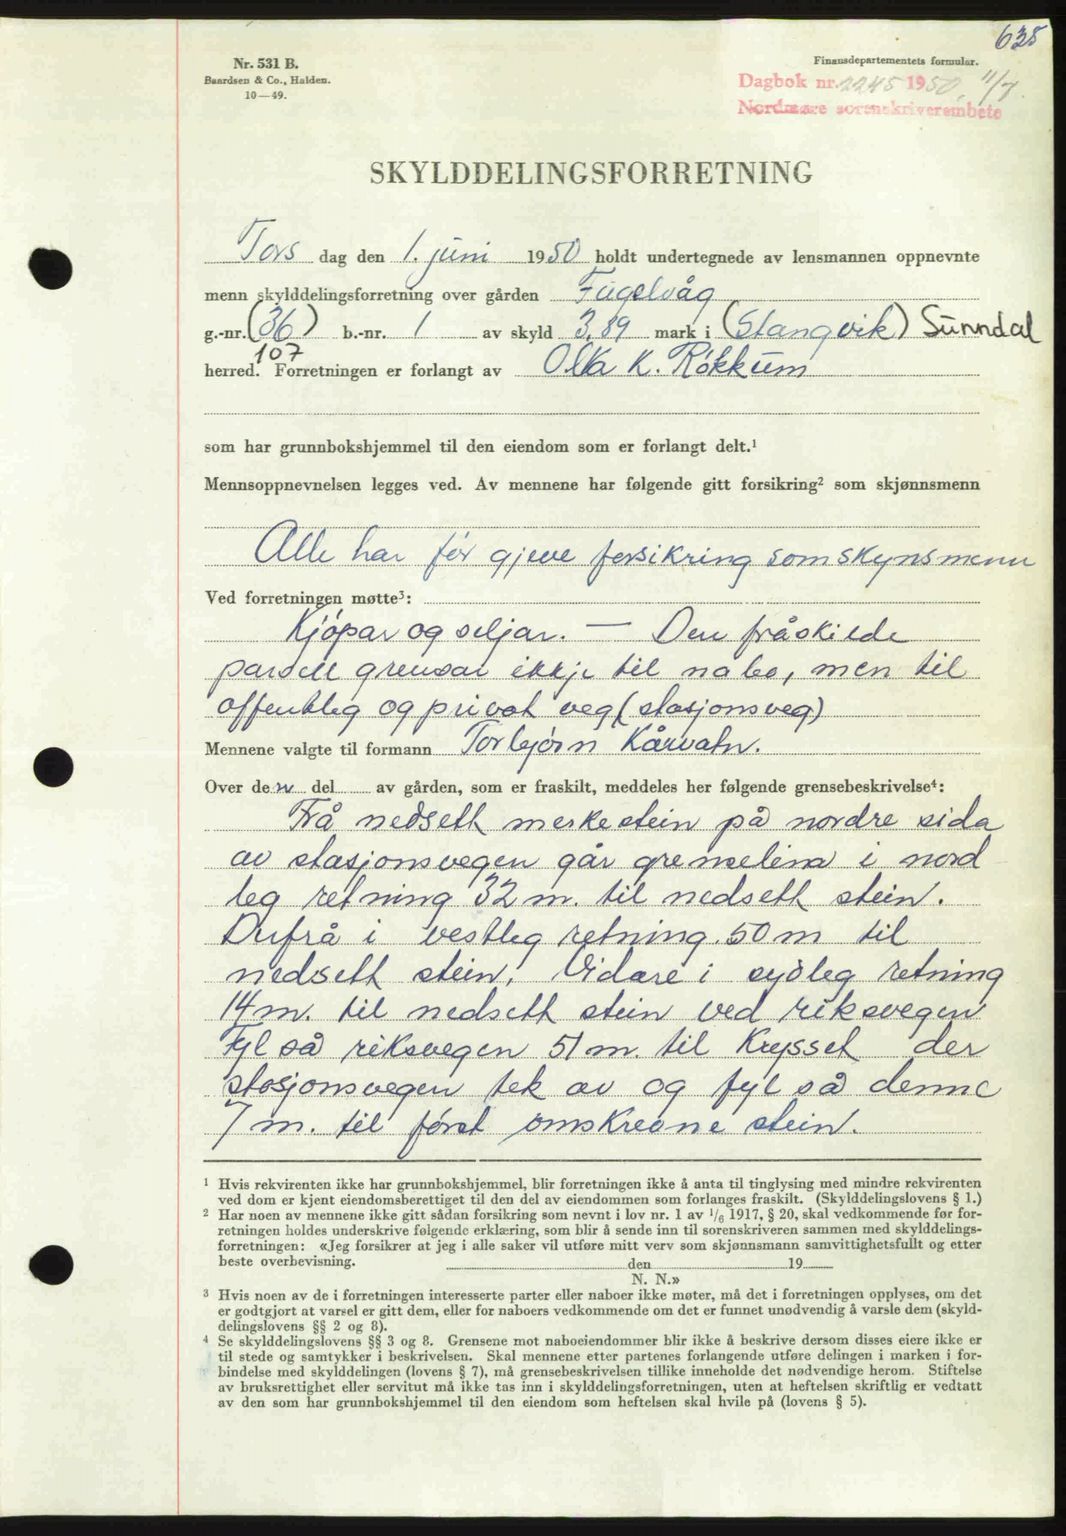 635
Nr. 531 B.
Baardsen & Co., Halden.
10—49.
Finansdepartementets formular.
Dagbok nr. 2245 1950, 11/7.
Nordmøre sorenskriverembete
SKYLDDELINGSFORRETNING
Tors dag den 1. juni 1950 holdt undertegnede av lensmannen oppnevnte
menn skylddelingsforretning over gården Fugelvåg
g.-nr. (36) b.-nr. 1 av skyld 3,89 mark i (Stangvik) Sunndal
107
herred. Forretningen er forlangt av Olla K. Røkkum
som har grunnbokshjemmel til den eiendom som er forlangt delt.¹
Mennsoppnevnelsen legges ved. Av mennene har følgende gitt forsikring² som skjønnsmenn
Alle har før gjeve forsikring som skynsmenn
Ved forretningen møtte³:
Kjøpar og seljar. — Den fråskilde
parsell grensar ikkje til nabo, men til
offentleg og privat veg (stasjonsveg)
Mennene valgte til formann Torbjørn Kårvatn.
Over den del av gården, som er fraskilt, meddeles her følgende grensebeskrivelse⁴:
Frå nedsett merkestein på nordre sida
av stasjonsvegen går grenselina i nord
leg retning 32 m. til nedsett stein.
Derfrå i vestleg retning 50 m til
nedsett stein. Vidare i sydleg retning
14 m. til nedsett stein ved riksvegen
Fyl så riksvegen 51 m. til Krysset der
stasjonsvegen tek av og fyl så denne
7 m. til først omskrevne stein.
¹ Hvis rekvirenten ikke har grunnbokshjemmel, blir forretningen ikke å anta til tinglysing med mindre rekvirenten
ved dom er kjent eiendomsberettiget til den del av eiendommen som forlanges fraskilt. (Skylddelingslovens § 1.)
² Har noen av mennene ikke gitt sådan forsikring som nevnt i lov nr. 1 av 1/6 1917, § 20, skal vedkommende før for-
retningen holdes underskrive følgende erklæring, som blir å sende inn til sorenskriveren sammen med skylddelings-
forretningen: «Jeg forsikrer at jeg i alle saker vil utføre mitt verv som skjønnsmann samvittighetsfullt og etter
beste overbevisning. den 19
N. N.»
³ Hvis noen av de i forretningen interesserte parter eller naboer ikke møter, må det i forretningen opplyses, om det
er godtgjort at varsel er gitt dem, eller for naboers vedkommende om det er funnet unødvendig å varsle dem (skyld-
delingslovens §§ 2 og 8).
⁴ Se skylddelingslovens §§ 3 og 8. Grensene mot naboeiendommer blir ikke å beskrive dersom disses eiere ikke er
til stede og samtykker i beskrivelsen. Skal mennene etter partenes forlangende utføre delingen i marken i for-
bindelse med skylddelingen (lovens § 7), må grensebeskrivelsen tillike inneholde det nødvendige herom. Stiftelse
av bruksrettighet eller servitut må ikke tas inn i skylddelingsforretningen, uten at heftelsen skriftlig er vedtatt
av den som har grunnbokshjemmel til den eiendom som heftelsen skal hvile på (lovens § 5).